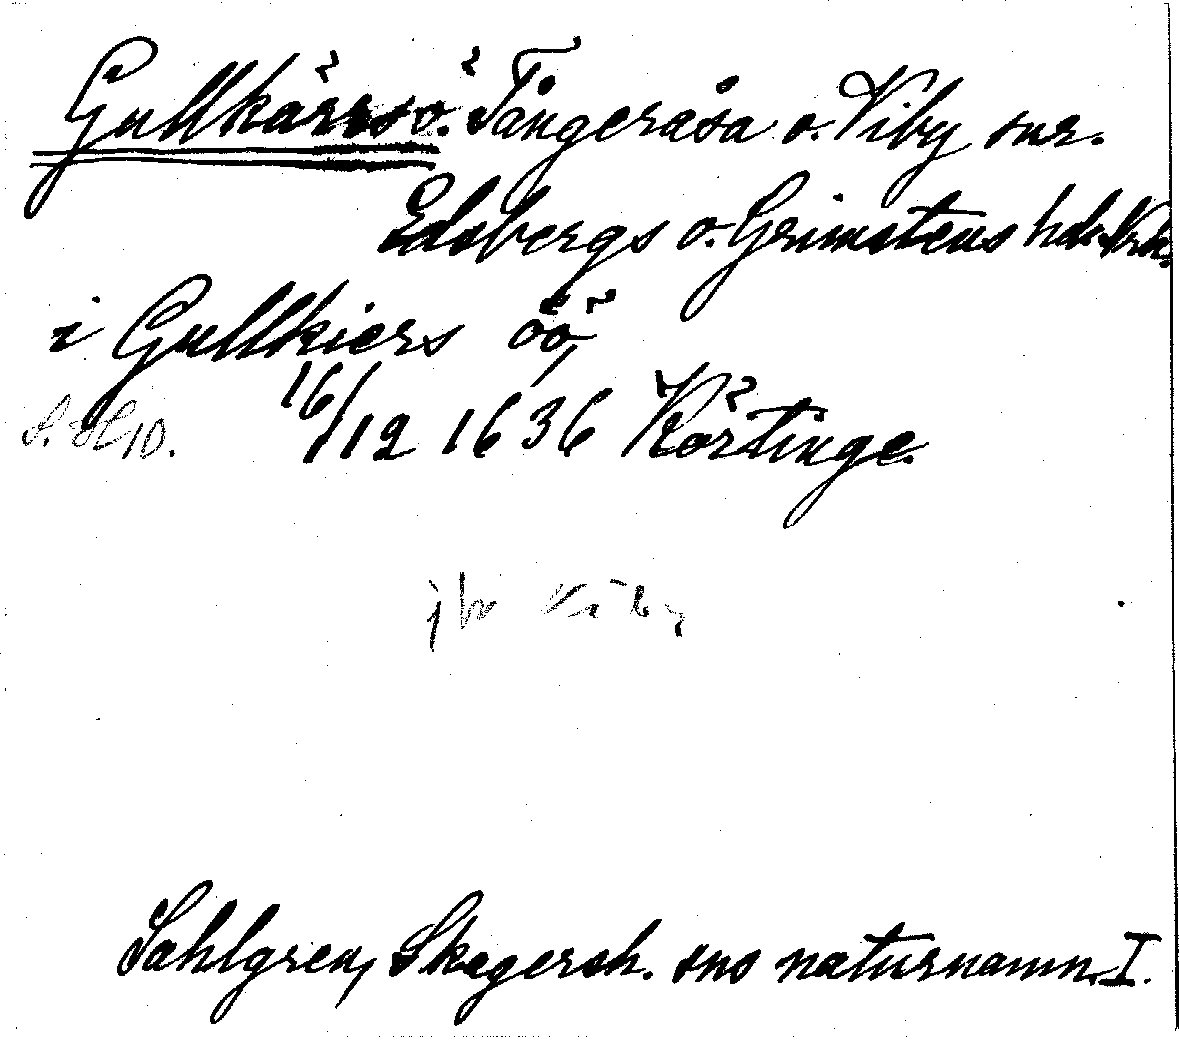 Gullkärrsö. Tångeråsa o. Viby snr.
Edsbergs o. Grimstens hdr. Nrk.
i Gullkiers öö,
16/12 1636 Körtinge.
jfr Viby
Sahlgren, Skagersh. sns naturnamn. I.